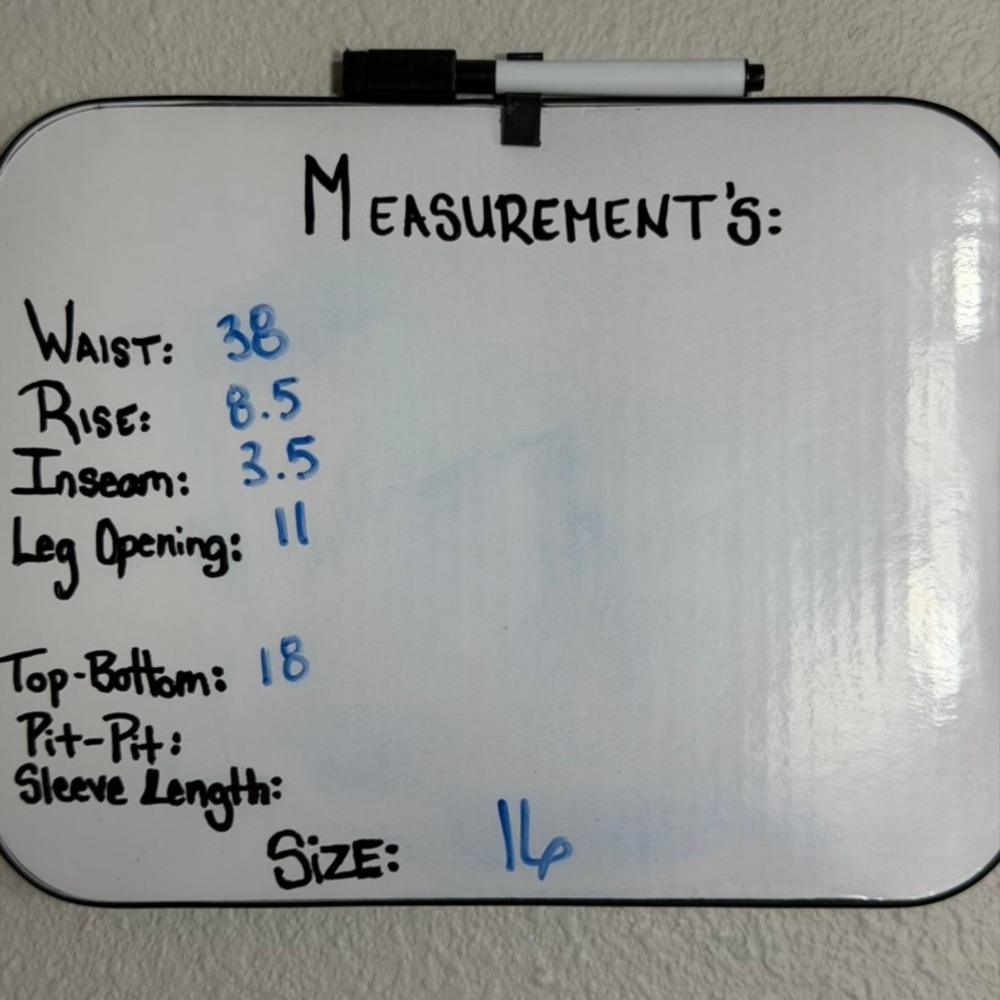 MEASUREMENT'S:
WAIST: 38
RISE: 8.5
Inseam: 3.5
Leg Opening: 11
Top-Bottom: 18
Pit-Pit:
Sleeve Length:
SiZE: 16